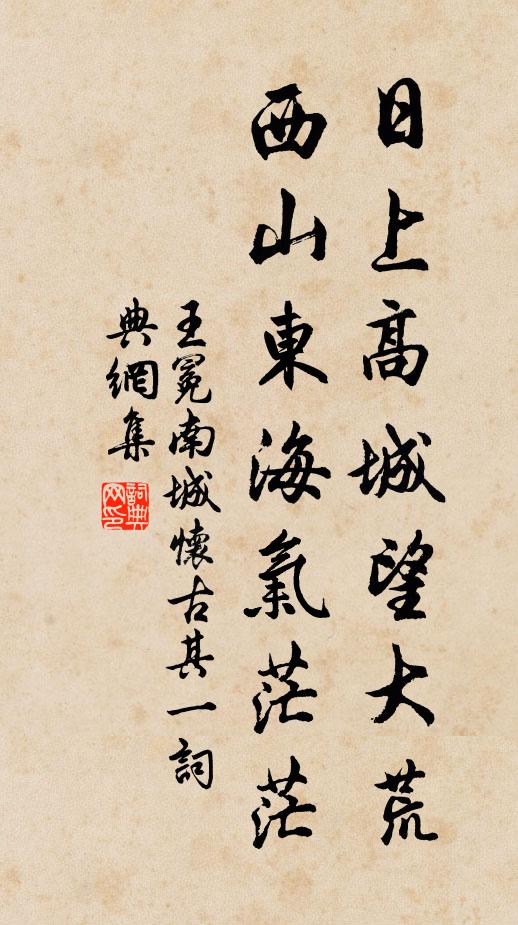 日上高城望大荒
西山東海氣茫茫
王冕南城懷古其一詞
典網集
詞典网印